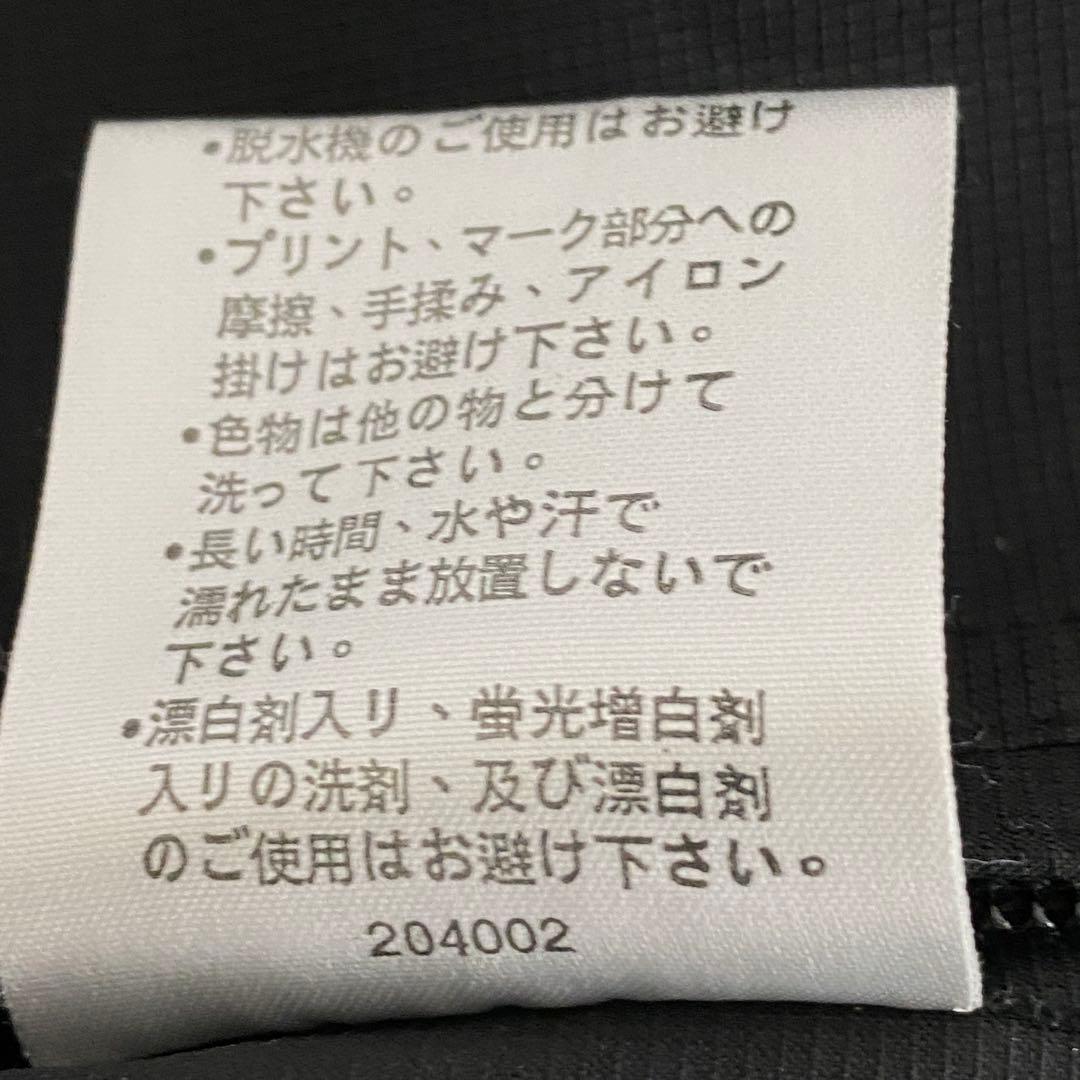 •脱水機のご使用はお避け
下さい。
•プリント、マーク部分への
摩擦、手揉み、アイロン
掛けはお避け下さい。
•色物は他の物と分けて
洗って下さい。
•長い時間、水や汗で
濡れたまま放置しないで
下さい。
•漂白剤入り、蛍光増白剤
入りの洗剤、及び漂白剤
のご使用はお避け下さい。
204002